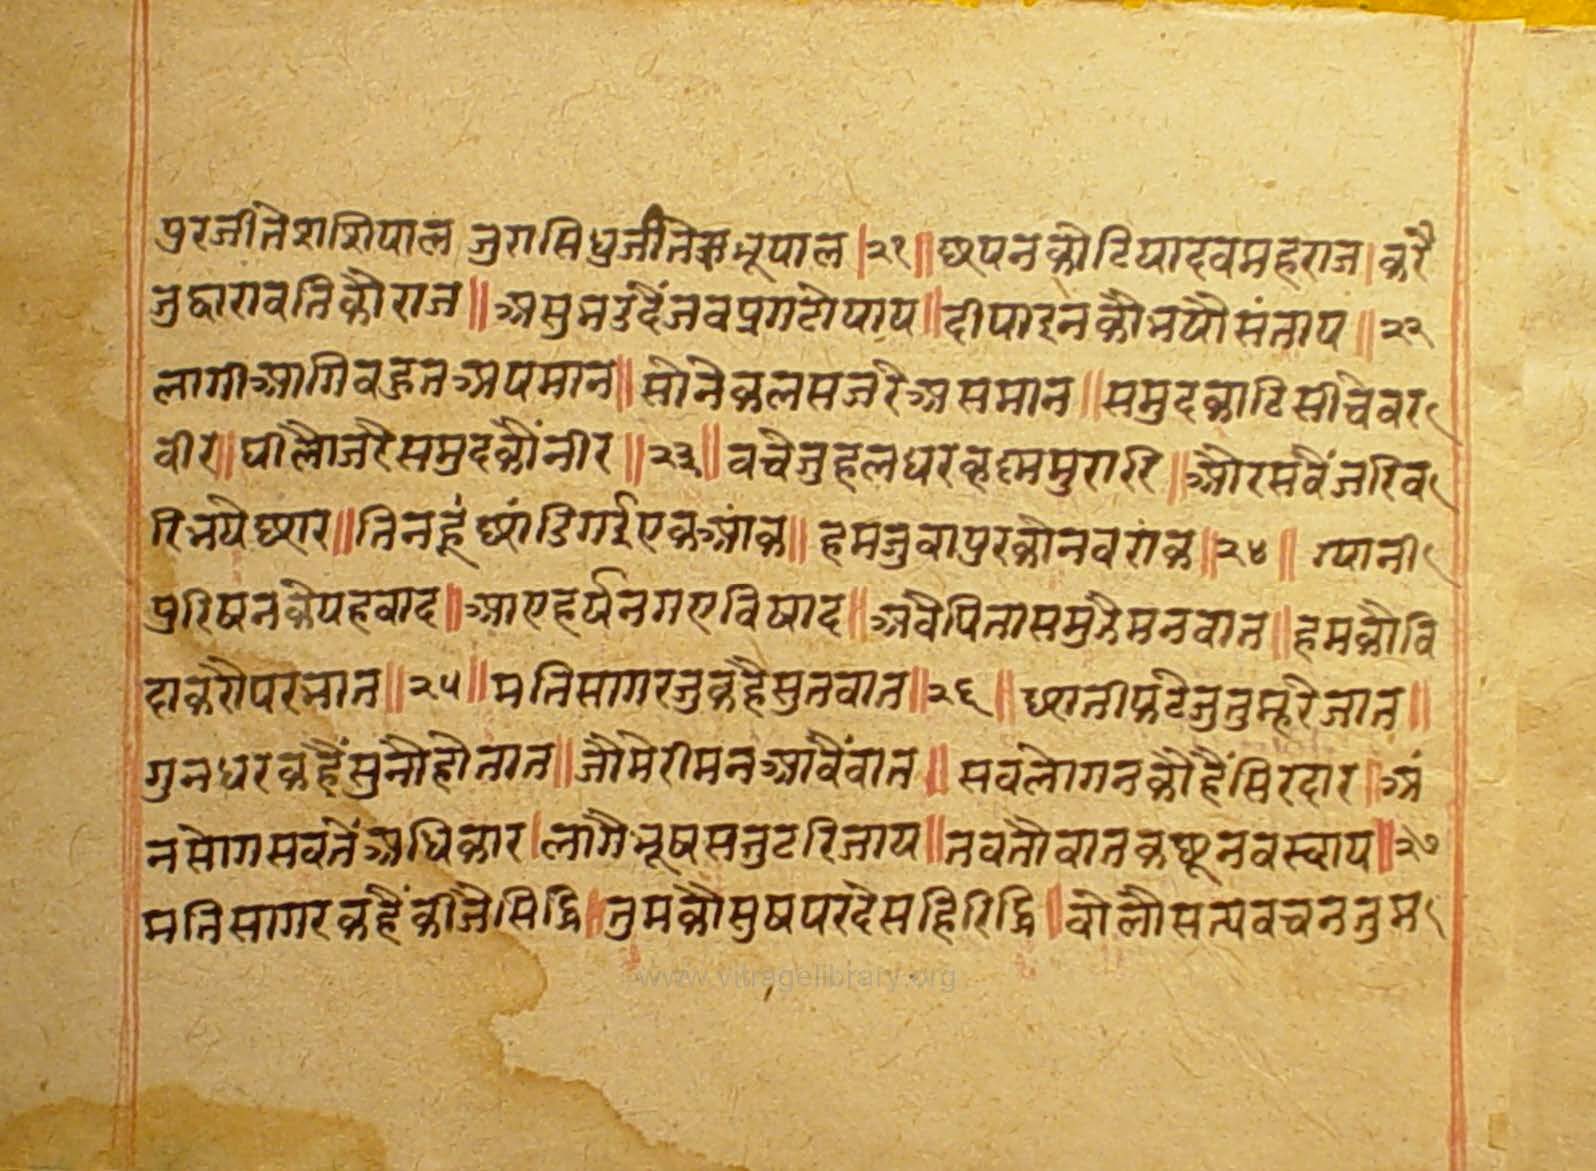 प्ररजीतेशशिपाल जुगसिधुजीते भूपाल।२१॥छपनकौटियादवमहराज।करै
जुद्वारावतिकौराज॥असुभउदैंजवप्रगटोपाप॥दीपाइनकौभयौसंताप॥२२
लागीआगिवहुतअपमान॥सोनेकलसजरैअसमान॥समुदकाटिसीचेवर
वीर॥घीलौजरैसमुदकौंनीर॥२३॥वचेजुहलधरकृष्नमुरारि॥औरसवैंजरिव
रिभयेछार॥तिनहूंछांडिगईएकआंक॥हमजुवाप्ररकौनवरांक॥२४॥ग्यानी
प्ररिषनकेयहवाद॥आएहर्षनगएविषाद॥अवैपितासमुझैमनवात॥हमकौवि
दाकरौपरभात॥२५॥मतिसागरजुकहैसुतवात॥२६॥छातीफटेजुतुम्हरेजात॥
गुनधरकहैंसुनौहोतात॥जौमेरीमनआवैंवात॥सवलोगनकौहैंसिरदार॥अं
नसोगसवतेंअधिकार।लागैभूषसजुटरिजाय॥नवतौवातकछूनवस्याय॥२७
मतिसागरकहैंकीजैसिद्धि॥तुमकौसुषपरदेसहिरिद्धि॥वोलौसत्यवचनतुम
www.vitragelibrary.org